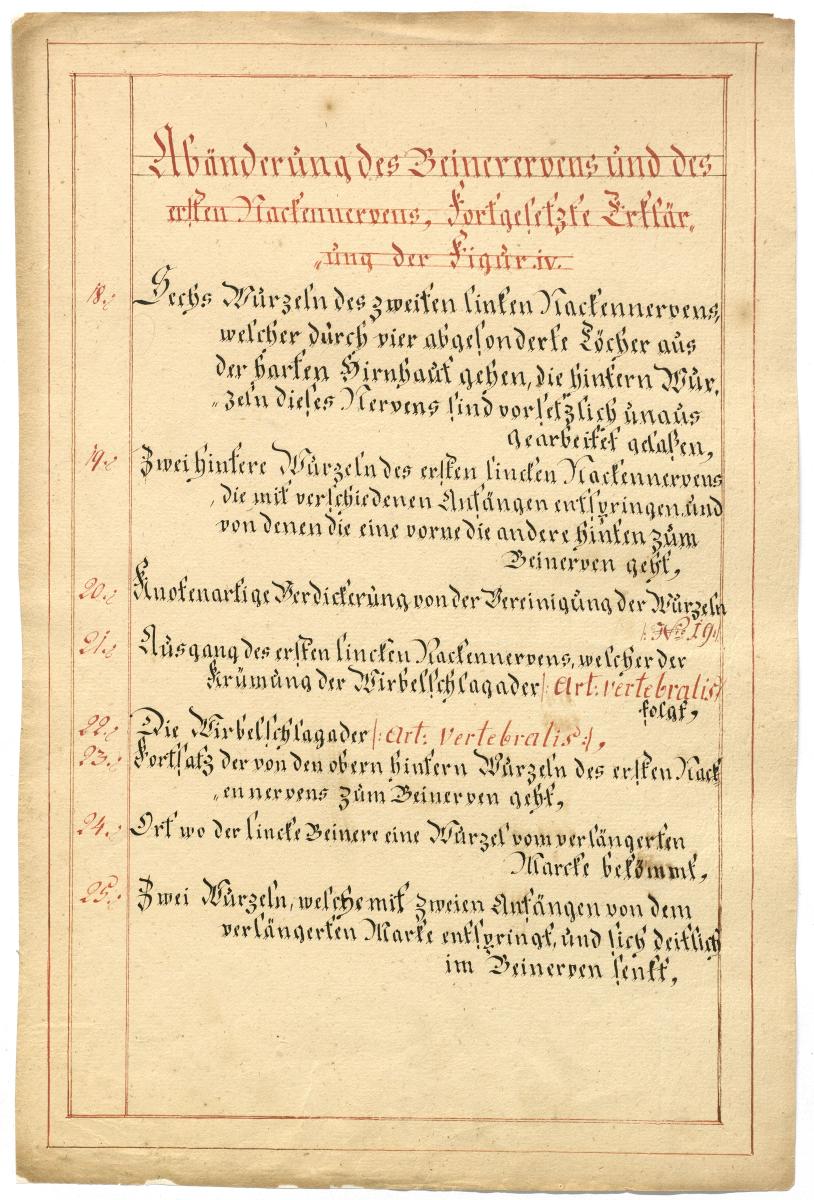 Abänderung des Beinerervens und des
ersten Nackennervens, Fortgesetzte Erklär„
„ung der Figur.iv.
18. Sechs Wurzeln des zweiten linken Nackennervens,
welcher durch vier abgesonderte Löcher aus
der harten Hirnhaut gehen, die hintern Wur„
„zeln dieses Nervens sind vorsetzlich unaus
gearbeitet gelaßen,
19. Zwei hintere Wurzeln des ersten lincken Nackennervens
die mit verschiedenen Anfängen entspringen, und
von denen die eine vorne die andere hinten zum
Beinerven geht,
20. Knotenartige Verdickerung von der Vereinigung der Wurzeln
/: No 19:/
21. Ausgang des ersten lincken Nackennervens, welcher der
Krümung der Wirbelschlagader /: art: vertebralis:/
folgt,
22. Die Wirbelschlagader /: art: vertebralis:/,
23. Fortsatz der von den obern hintern Wurzeln des ersten Nack
„ennervens zum Beinerven geht,
24. Ort wo der lincke Beinere eine Wurzel vom verlängerten
Marcke bekömmt,
25. Zwei Wurzeln, welche mit zweien Anfängen von dem
verlängerten Marke entspringt, und sich deitlich
im Beinerven senkt,